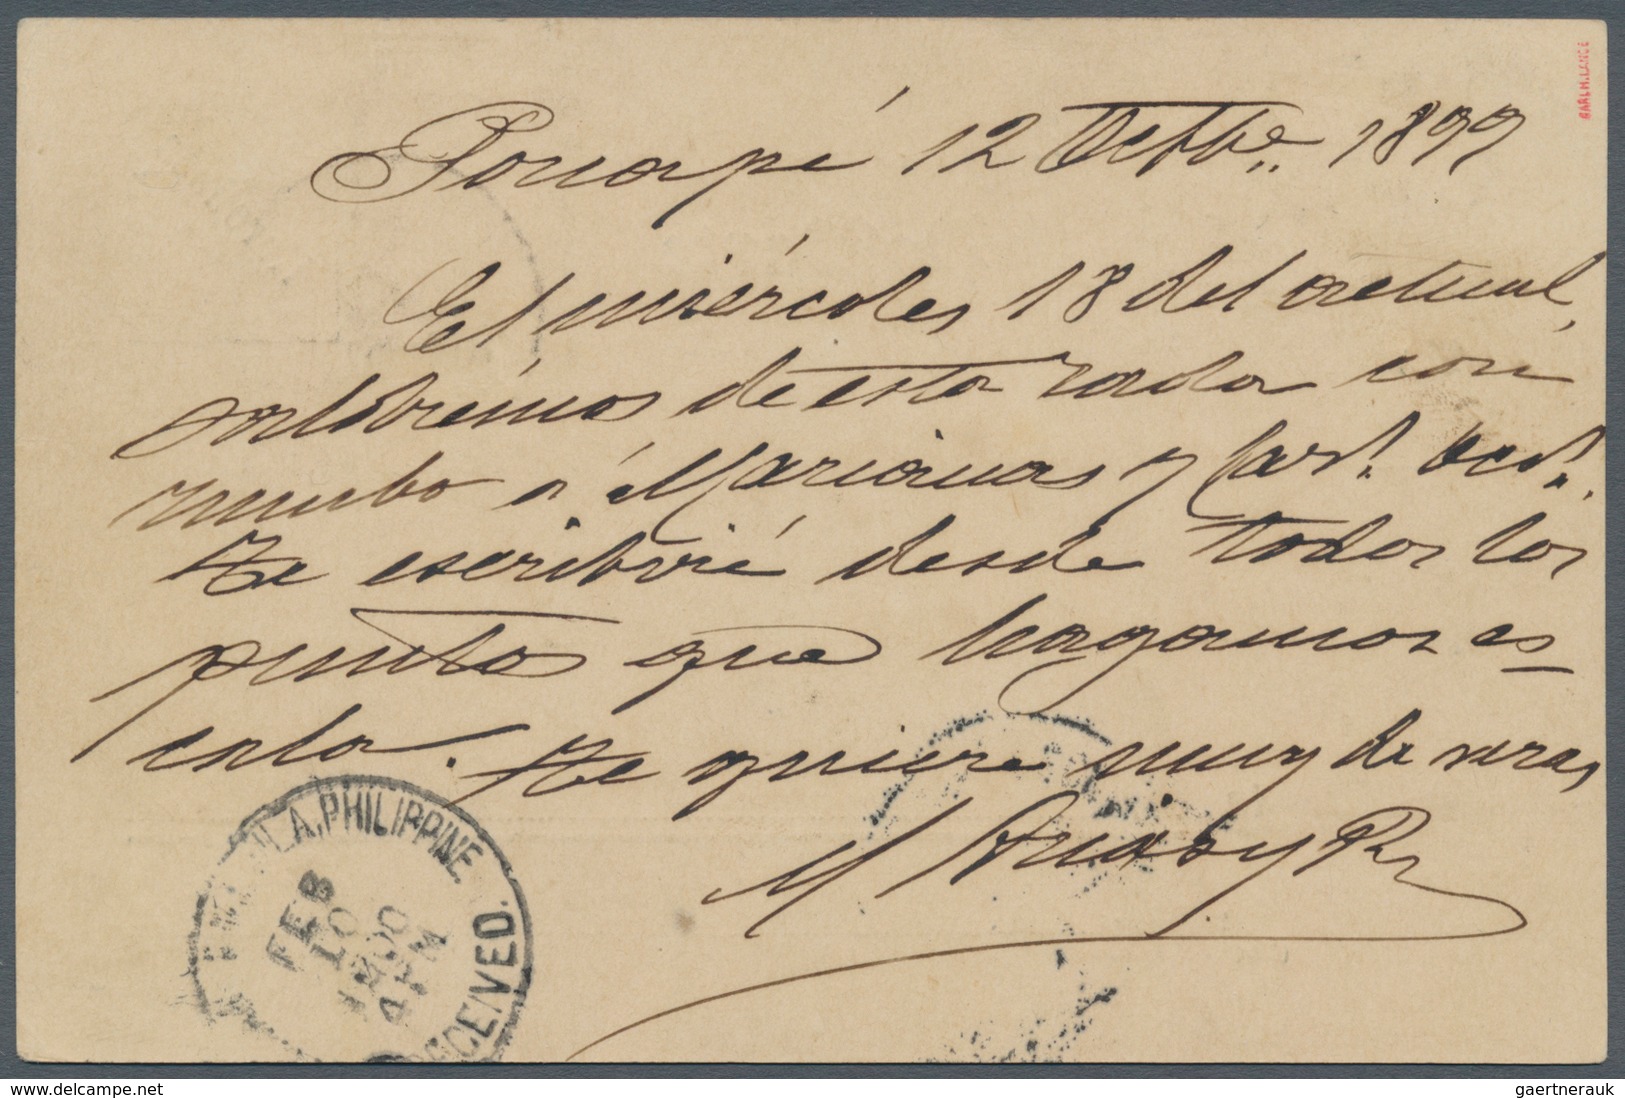 Ponapé 12 Octbe. 1899
El miércoles 18 del actual,
saldrémos de esta rada con
rumbo á Marianas y Car.s Occ.s.
Te escribiré desde todos los
puntos que hagamos es-
cala. Te quiere muy de veras
M Arias y R
MANILA, PHILIPPINE
FEB
10
1900
4 PM
RECEIVED.
www.delcampe.net
gaertnerauk